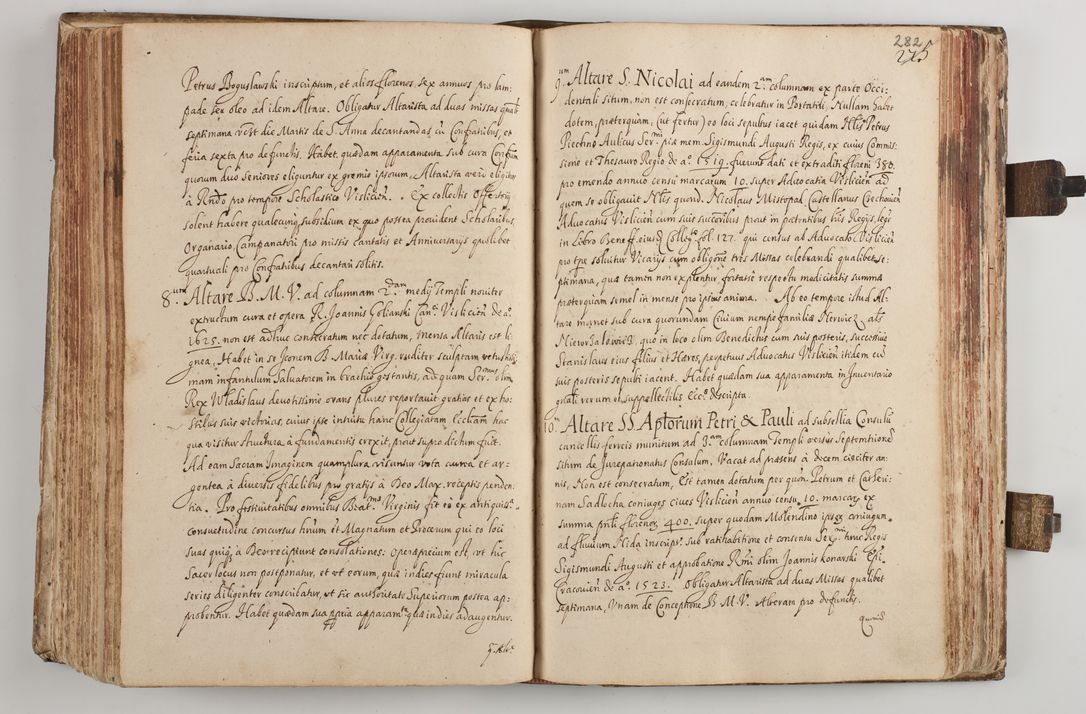 Petrus Boguslawski inscriptum, et alios florenos sex annuos pro lam-
pade seu oleo ad idem Altare. Obligatur Altarista ad duas missas qualibet
septimana vnâ die Martis de S. Anna decantandas cũ Confratribus, et
feria sexta pro defunctis. Habet quædam apparamenta sub cura Confratrũ
quorum duo Seniores eliguntur ex gremio ipsorum, Altarista verò eligitur
à Rndo pro tempore Scholastico Vislicien̄. Ex collectis Offertorijs
solent habere qualecunq subsidium ex quo postea prouident Scholaribus
Organario, Campanatori pro missis cantatis et Anniuersarijs quolibet
quartuali pro Confratribus decantari solitis.
8.um Altare B. M. V. ad columnam 2dam medij Templi nouiter
extructum cura et opera R. Joannis Golianski Can. Vislicien̄ de ao.
1625. non est adhuc consecratum nec dotatum, mensa Altaris est li-
gnea, Habet in se Iconem B. Mariæ Virg. ruditer sculptam vetustissi-
mam infantulum Saluatorem in brachio gestantis, ad quam Ser.mus olim
Rex Wladislaus deuotissime orans plures reportauit gratias et ex ho-
stibus suis victorias, cuius ipse intuitu hanc Collegiatam Ecclam hac
qua visitur structura à fundamentis erexit, prout supra dictum fuit.
Ad eam Sacram Imaginem quamplura visuntur vota aurea et ar-
gentea à diuersis fidelibus pro gratijs à Deo Max. receptis penden-
tia. Pro festiuitatibus omnibus Beat.mæ Virginis fit eò ex antiquiss.a
consuetudine concursus hnum et Magnatum et Procerum qui eo loci
suas quiq à Deo recipiunt consolationes: Operæprecium est, vt hic
Sacer locus non postponatur, et vt eorum, quæ indies fiunt miracula
series diligenter conscribatur, vt sic authoritate Superiorum postea ap-
probentur. Habet quædam sua ppria apparam.ta quæ indies adaugentur.
9. Alt.
282
275
9.um Altare S. Nicolai ad eandem 2.am columnam ex parte Occi-
dentali situm, non est consecratum, celebratur in Portatili, Nullam habet
dotem, præterquam, (ut fertur) eo loci sepultus iacet quidam Nlis Petrus
Piechno Aulicus Ser.mi piæ mem. Sigismundi Augusti Regis, ex cuius Commis-
sione et Thesauro Regio de ao. 1519. fuerunt dati et extraditi floreni 380
pro emendo annuo censu marcarum 10. super Aduocatia Vislicien̄ ad
quem se obligauit Nlis quond. Nicolaus Mistopad Castellanus Czechouien̄
Aduocatus Vislicien̄ cum suis succoribus prout in patentibus lris Regijs, legi
in Libro Benef. eiusd. Colleg. fol. 127. qui census ab Aduocato Vislicien̄
pro tpe soluitur Vicarijs cum obligōne tres Missas celebrandi qualibet se-
ptimana, quæ tamen non explentur fortasse respectu modicitatis summæ
præterquam semel in mense pro ipsius anima. Ab eo tempore istud Al-
tare manet sub cura quorundam Ciuium nempe familiæ Herwicz als
, quo in loco olim Benedictus cum suis posteris, successiue
Stanislaus eius filius et Hæres, perpetuus Aduocatus Vislicien̄ itidem cũ
suis posteris sepulti iacent. Habet quædam sua apparamenta in Inuentario
gnali rerum et suppellectilis Eccæ descripta.
10.um Altare SS. Aptorum Petri & Pauli ad subsellia Consulũ
cancellis ferreis munitum ad 3.am columnam Templi versus Septemtrione
situm de Jurepatronatus Consulum, Vacat ad præsens à decem circiter an-
nis, Non est consecratum, Est tamen dotatum per quon. Petrum et Cathari-
nam Sadlocha coniuges ciues Vislicien̄ annuo censu 10. marcar. ex
summa pnli floren. 400. super quodam Molendino ipsor. coniugum
ad fluuium Nida inscript. sub ratihabitione et consensu Ser.mi huius Regis
Sigismundi Augusti et approbatione Rmi olim Joannis Konarski Epi.
Cracouien̄ de ao. 1523. Obligatur Altarista ad duas Missas qualibet
septimana, Vnam de Conceptione B. M. V. Alteram pro defunctis.